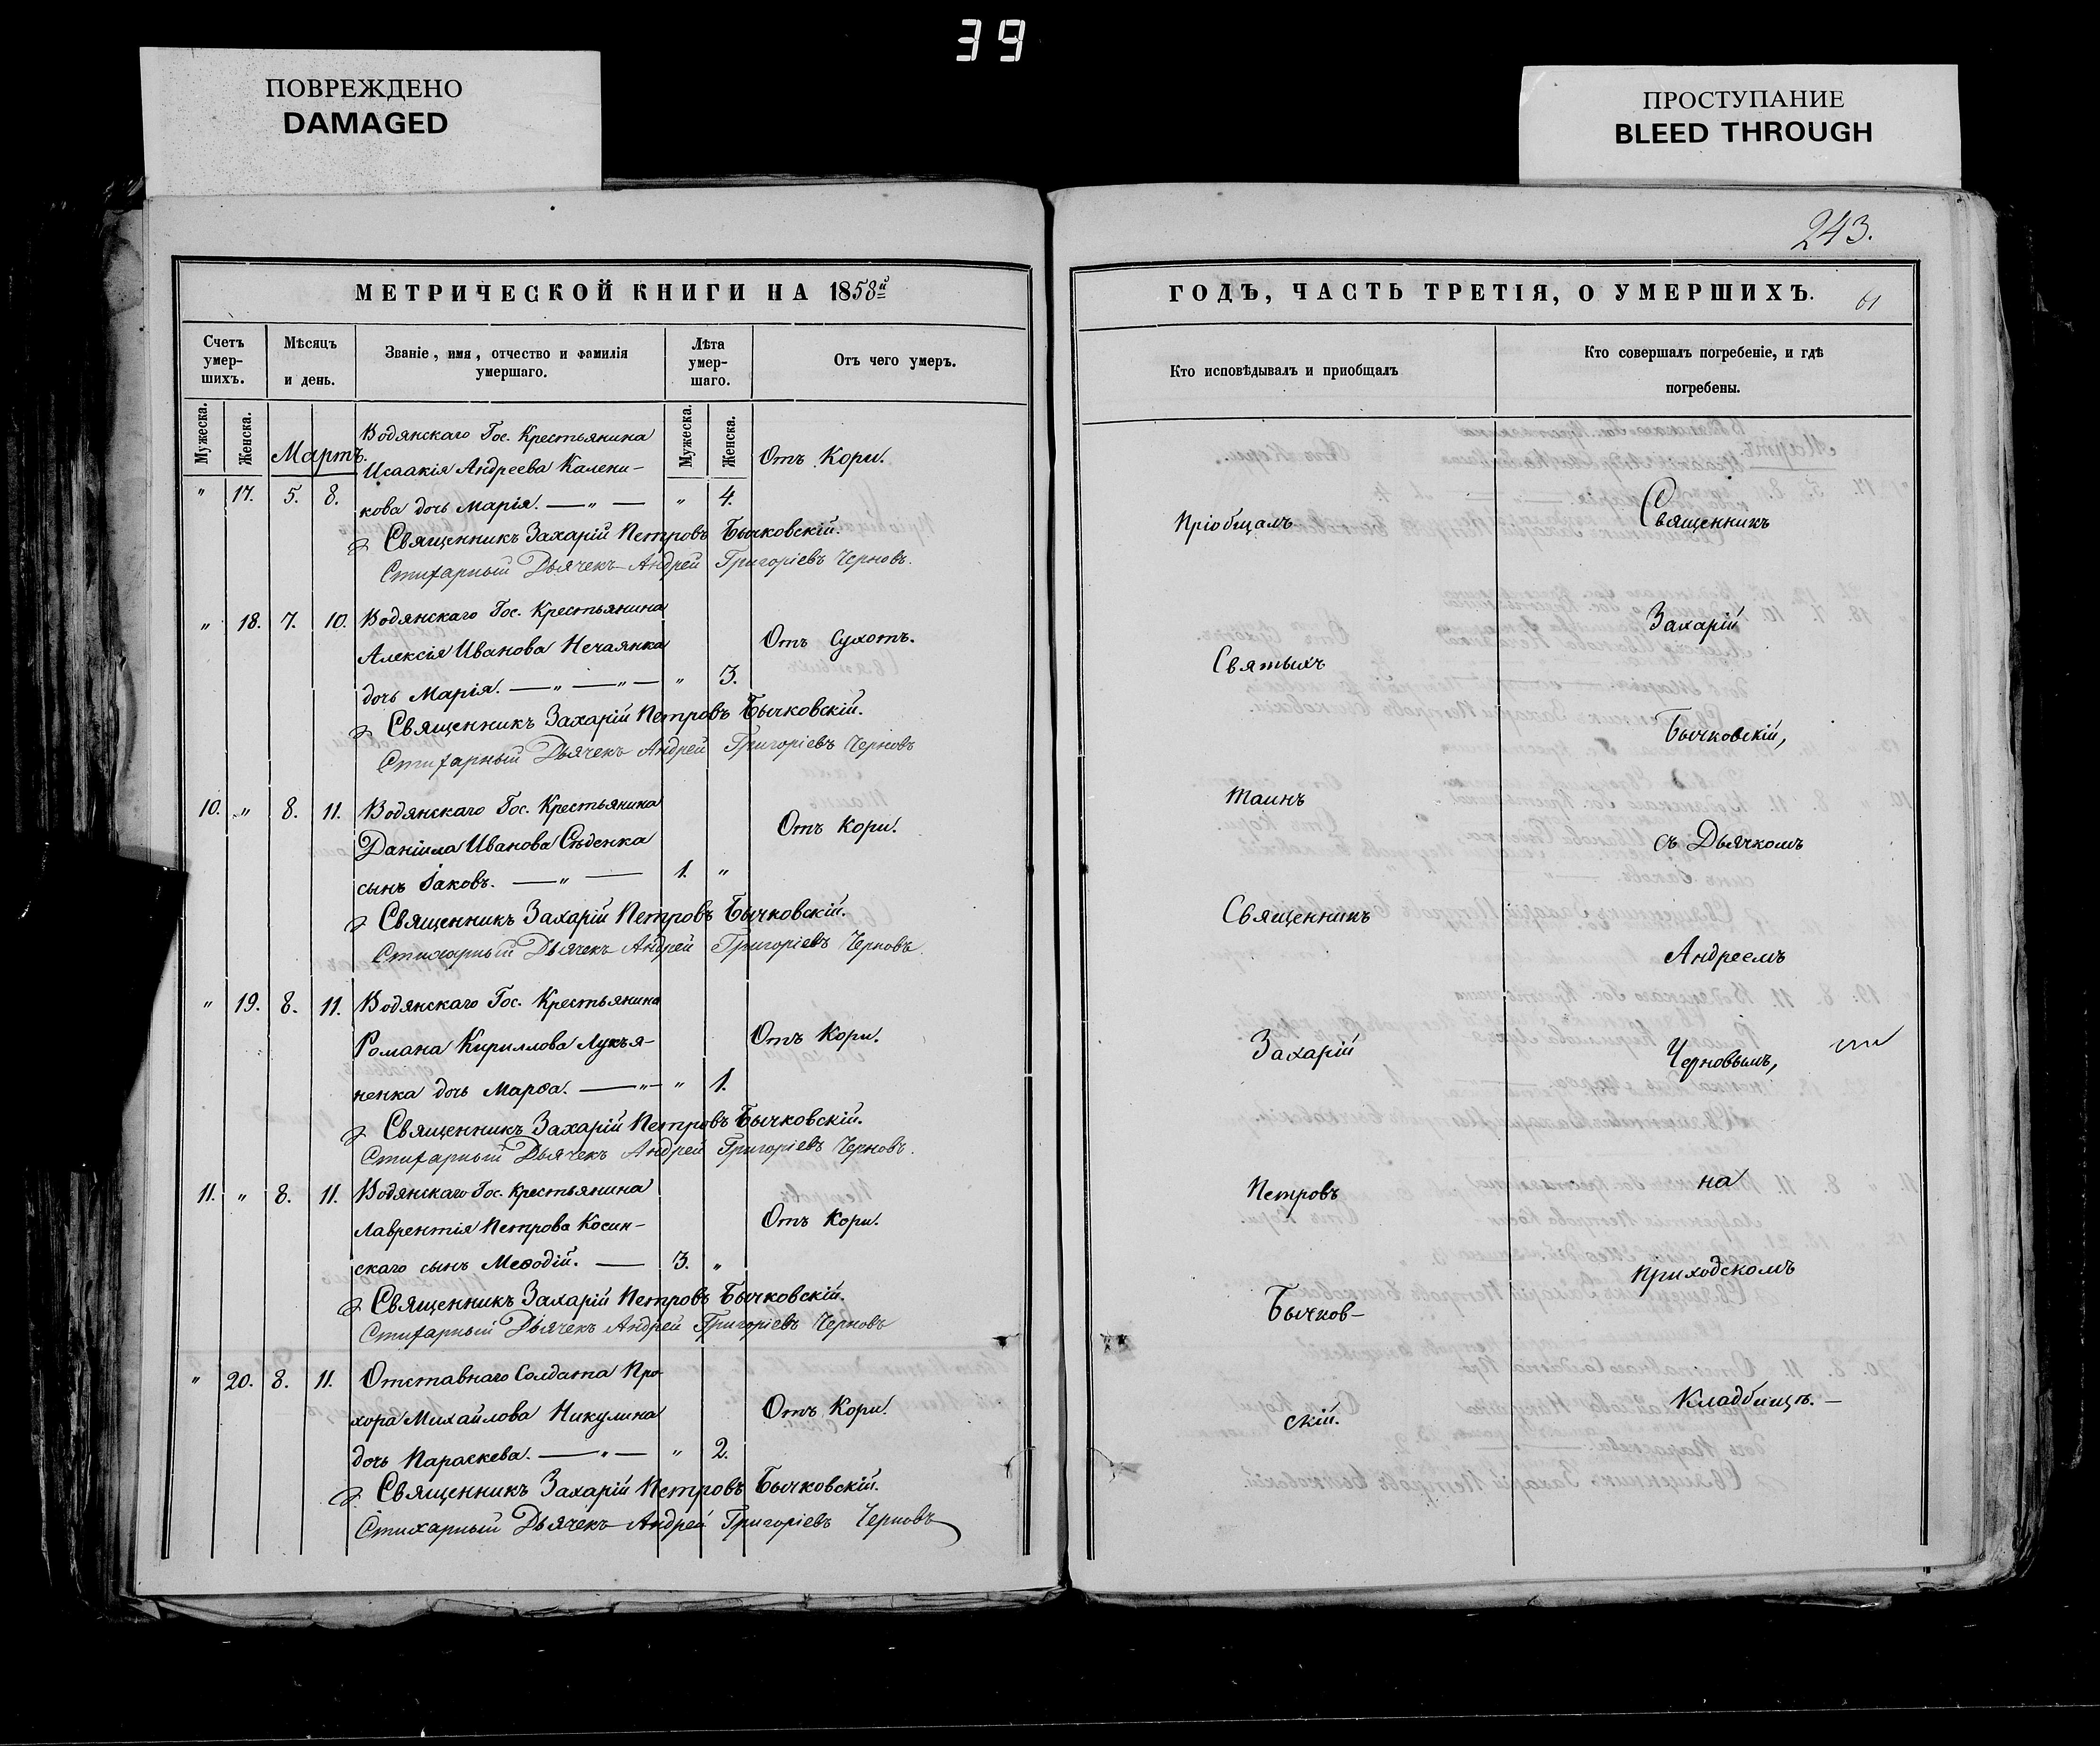 39
ПОВРЕЖДЕНО
DAMAGED
ПРОСТУПАНИЕ
BLEED THROUGH
МЕТРИЧЕСКОЙ КНИГИ НА 1858й
Счетъ умер-шихъ.
Мѣсяцъ и день.
Званіе, имя, отчество и фамилія умершаго.
Лѣта умер-шаго.
Отъ чего умеръ.
Мужеска.
Женска.
Мужеска.
Женска.
Мартъ.
Водянскаго Гос. Крестьянина
Исаакія Андреева Калени-
Отъ Кори.
" 17. 5. 8. кова дочь Марія. — " — " 4.
Священникъ Захарій Петровъ Бычковскій.
Стихарный Дьячекъ Андрей Григоріевъ Черновъ.
" 18. 7. 10. Водянскаго Гос. Крестьянина
Алексія Иванова Нечаянка Отъ Сухотъ.
дочь Марія. — " — " — " 3.
Священникъ Захарій Петровъ Бычковскій.
Стихарный Дьячекъ Андрей Григоріевъ Черновъ
10. " 8. 11. Водянскаго Гос. Крестьянина
Даніила Иванова Сѣденка Отъ Кори.
сынъ Іаковъ. — " — 1. "
Священникъ Захарій Петровъ Бычковскій.
Стихарный Дьячекъ Андрей Григоріевъ Черновъ
" 19. 8. 11. Водянскаго Гос. Крестьянина
Романа Кириллова Лукья- Отъ Кори.
ненка дочь Марѳа. — " — " 1.
Священникъ Захарій Петровъ Бычковскій.
Стихарный Дьячекъ Андрей Григоріевъ Черновъ.
11. " 8. 11. Водянскаго Гос. Крестьянина
Лаврентія Петрова Косин- Отъ Кори.
скаго сынъ Меѳодій. — 3. "
Священникъ Захарій Петровъ Бычковскій.
Стихарный Дьячекъ Андрей Григоріевъ Черновъ
" 20. 8. 11. Отставнаго Солдата Про-
хора Михайлова Никулина Отъ Кори.
дочь Параскева. — " — " 2.
Священникъ Захарій Петровъ Бычковскій.
Стихарный Дьячекъ Андрей Григоріевъ Черновъ
243.
ГОДЪ, ЧАСТЬ ТРЕТІЯ, О УМЕРШИХЪ.
61
Кто исповѣдывалъ и приобщалъ
Кто совершалъ погребеніе, и гдѣ погребены.
Пріобщалъ
Святыхъ
Таинъ
Священникъ
Захарій
Петровъ
Бычков-
скій.
Священникъ
Захарій
Бычковскій,
съ Дьячкомъ
Андреемъ
Черновымъ,
на
приходскомъ
Кладбищѣ. —